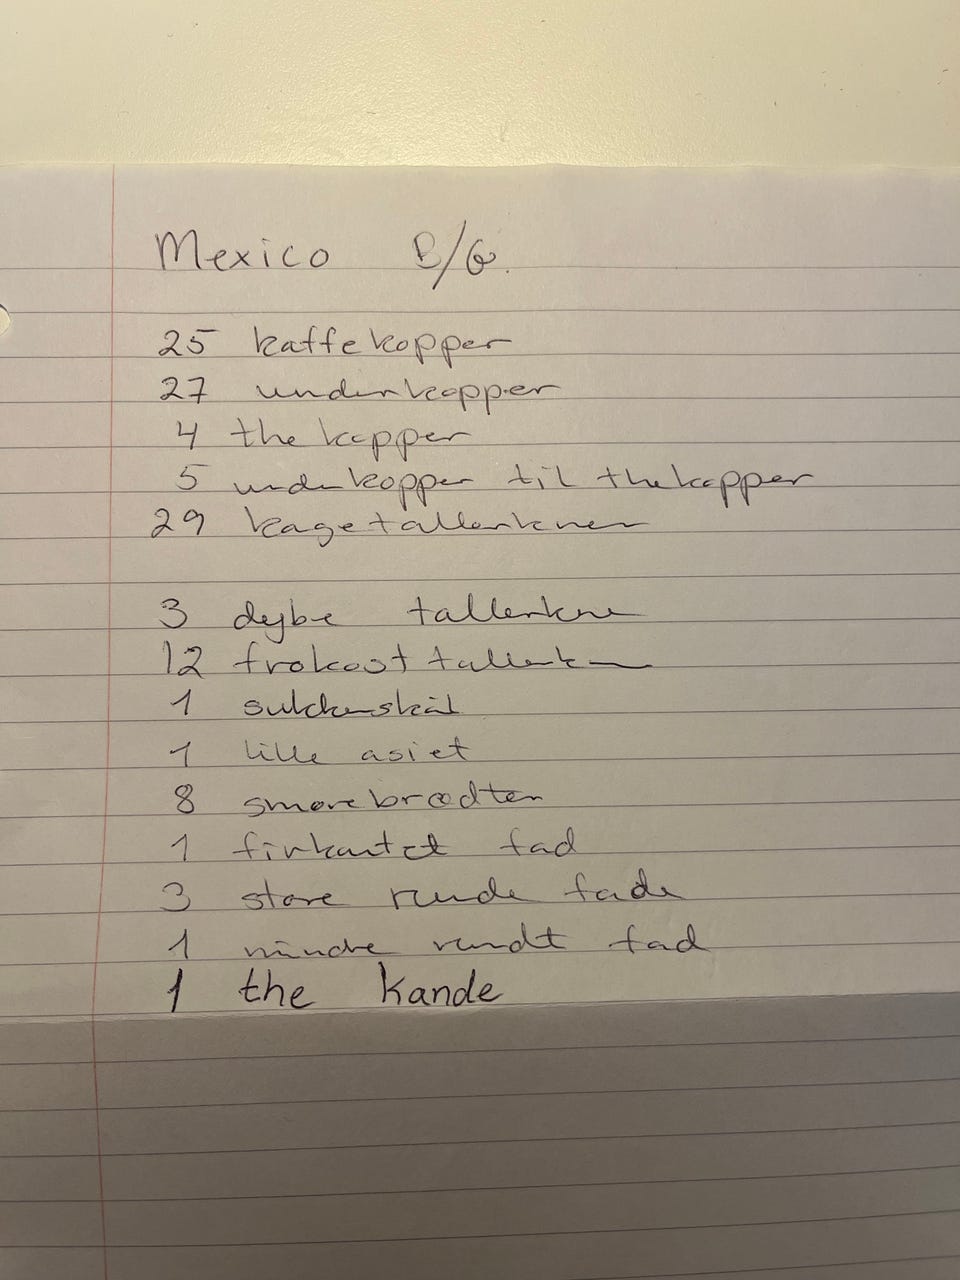 Mexico B/G.
25 kaffekopper
27 underkopper
4 the kopper
5 underkopper til thekopper
29 kagetallerkner
3 dybe tallerkne
12 frokosttallerkn
1 sukkerskål
1 lille asiet
8 smørebrødten
1 firkantet fad
3 store runde fade
1 mindre rundt fad
1 the kande